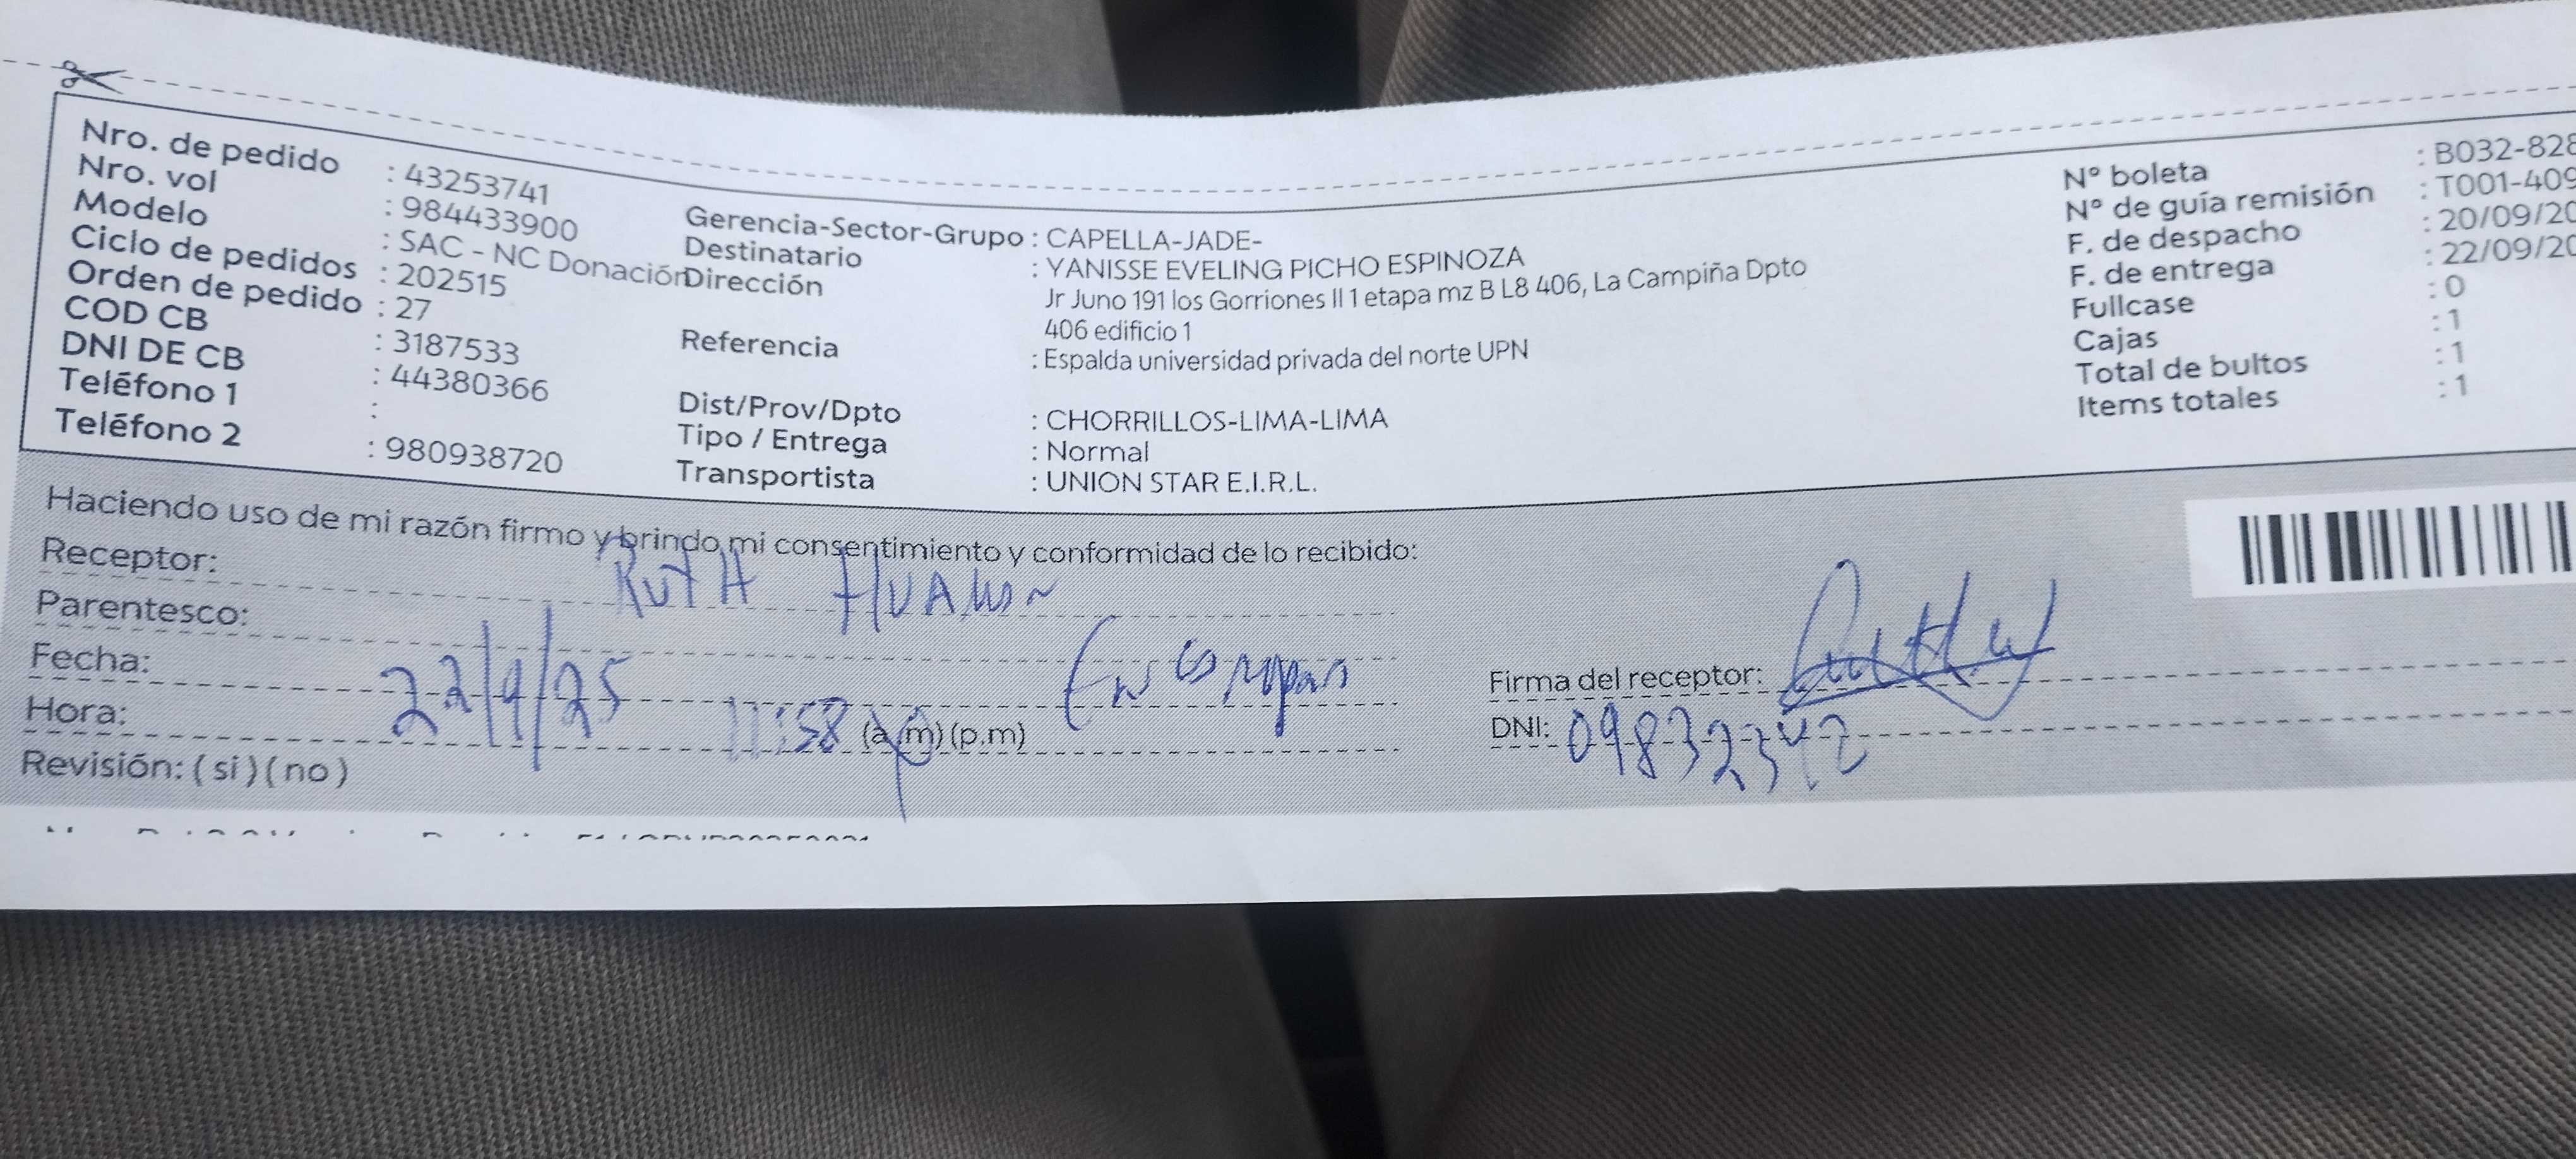 Nro. de pedido : 43253741
Nro. vol : 984433900
Modelo : SAC - NC Donación
Ciclo de pedidos : 202515
Orden de pedido : 27
COD CB : 3187533
DNI DE CB : 44380366
Teléfono 1 :
Teléfono 2 : 980938720
Gerencia-Sector-Grupo : CAPELLA-JADE-
Destinatario : YANISSE EVELING PICHO ESPINOZA
Dirección Jr Juno 191 los Gorriones II 1 etapa mz B L8 406, La Campiña Dpto
406 edificio 1
Referencia : Espalda universidad privada del norte UPN
Dist/Prov/Dpto : CHORRILLOS-LIMA-LIMA
Tipo / Entrega : Normal
Transportista : UNION STAR E.I.R.L.
N° boleta : B032-828
N° de guía remisión : T001-409
F. de despacho : 20/09/20
F. de entrega : 22/09/20
Fullcase : 0
Cajas : 1
Total de bultos : 1
Items totales : 1
Haciendo uso de mi razón firmo y brindo mi consentimiento y conformidad de lo recibido:
Receptor: RUTH
Parentesco:
Fecha: 22/9/25
Hora: 11:58 (a.m) (p.m)
Revisión: ( si ) ( no )
Firma del receptor:
DNI: 09832342